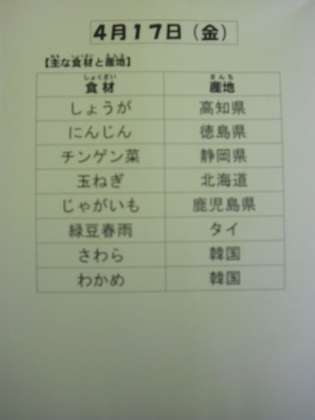 4月17日（金）
【主な食材と産地】
食材 産地
しょうが 高知県
にんじん 徳島県
チンゲン菜 静岡県
玉ねぎ 北海道
じゃがいも 鹿児島県
緑豆春雨 タイ
さわら 韓国
わかめ 韓国